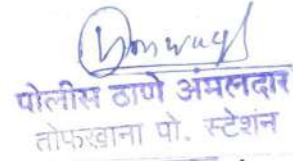 पोलीस ठाणे अंमलदार
तोफखाना पो. स्टेशन